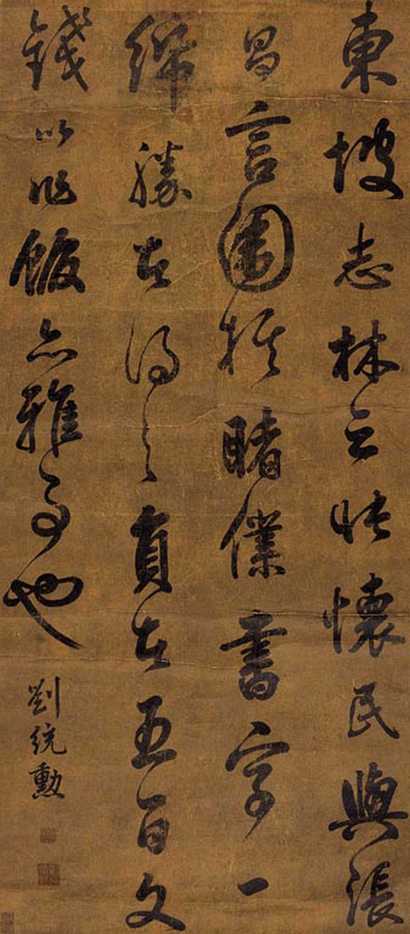 東坡志林云張懷民與張
昌言圍棋賭僕書字一
紙勝者得之負者五百文
錢以作飯亦雅事也
劉統勳